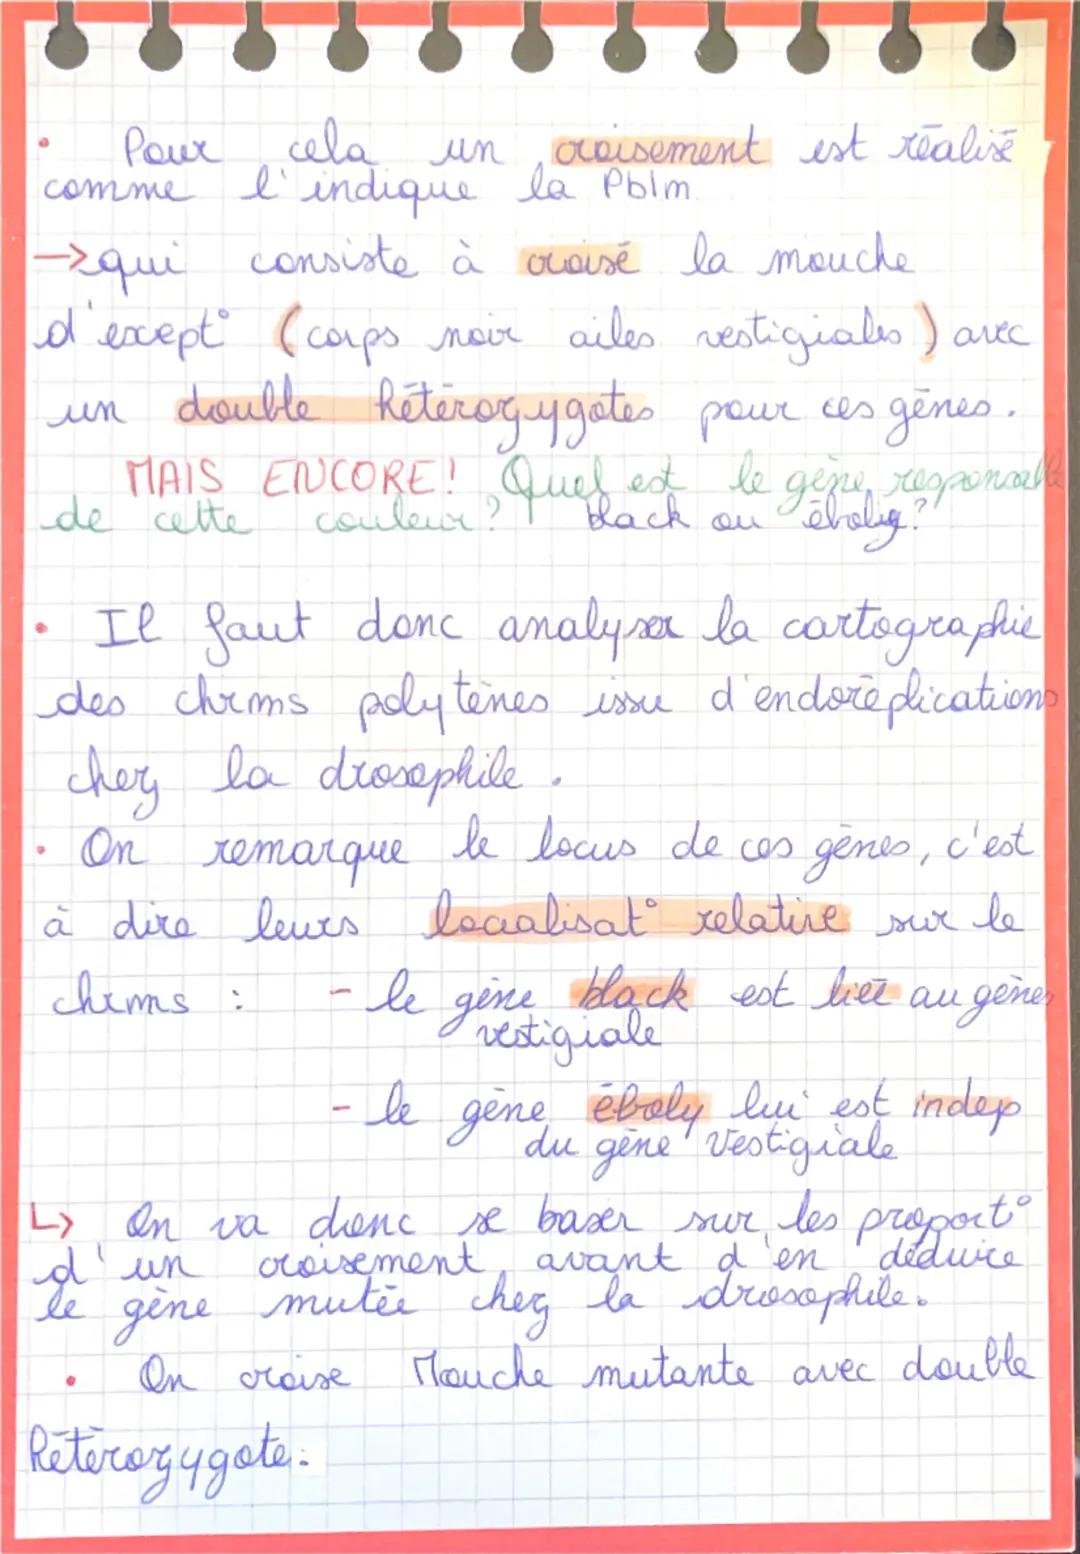 • Pour cela un croisement est réalisé
comme l'indique la Pblm
→ qui consiste à croisé la mouche
d'except° (corps noir ailes vestigiales) avec
un double hétérozygotes pour ces gènes.
MAIS ENCORE! Quel est le gène responsable
de cette couleur? black ou éboly?
• Il faut donc analyser la cartographie
des chrms polytènes issu d'endoréplications
chez la drosophile.
• On remarque le locus de ces gènes, c'est
à dire leurs localisat° relative sur le
chrms : - le gène black est liée au gènes
vestigiale
- le gène éboly lui est indep
du gène Vestigiale
↳ On va donc se baser sur les proport°
d'un croisement avant d'en déduire
le gène mutée chez la drosophile.
• On croise Mouche mutante avec double
hétérozygote: